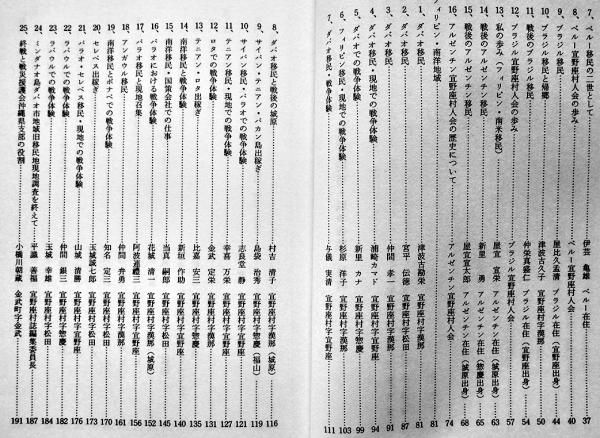 7、ペルー移民の二世として 伊芸 亀雄 ペルー在住 37
8、ペルー宜野座村人会の歩み ペルー宜野座村人会 40
9、ブラジル移民 屋比久孟清 ブラジル在住(宜野座出身) 44
10、ブラジル移民と帰郷 津波古久子 宜野座村字漢那 50
11、戦後のブラジル移民 仲栄真盛仁 ブラジル在住(宜野座出身) 54
12、ブラジル宜野座村人会の歩み ブラジル宜野座村人会 57
13、私の歩み(フィリピン・南米移民) 屋宜 宣栄 アルゼンチン在住(城原出身) 63
14、戦後のアルゼンチン移民 新里 勇 アルゼンチン在住(惣慶出身) 65
15、戦後のアルゼンチン移民 屋宜宣太郎 アルゼンチン在住(城原出身) 68
16、アルゼンチン宜野座村人会の歴史について アルゼンチン宜野座村人会 74
フィリピン・南洋地域 81
1、ダバオ移民 津波古勘栄 宜野座村字漢那 81
2、ダバオ移民 宮平 伝徳 宜野座村字漢那 87
3、ダバオ移民 仲間 孝一 宜野座村字漢那 91
4、ダバオ移民・現地での戦争体験 浦崎カマド 宜野座村字漢那 94
5、ダバオでの戦争体験 新里 カナ 宜野座村字漢那 99
6、フィリピン移民・現地での戦争体験 杉原 洋子 宜野座村字漢那 103
7、ダバオ移民・戦争体験 与儀 実清 宜野座村字宜野座 111
8、ダバオ移民と戦後の城原 村吉 清子 宜野座村字漢那(城原) 116
9、サイパン・テニアン・パガン島出稼ぎ 島袋 治秀 宜野座村字惣慶(福山) 119
10、サイパン移民・パラオでの戦争体験 志良堂 静 宜野座村字宜野座 121
11、テニアン移民・現地での戦争体験 幸喜 万栄 宜野座村字宜野座 127
12、ロタでの戦争体験 金武 定栄 宜野座村字漢那 131
13、テニアン・ロタ出稼ぎ 比嘉 安三 宜野座村字惣慶 135
14、南洋移民と戦争体験 新垣 作助 宜野座村字宜野座 140
15、南洋移民・国策会社での仕事 当真 嗣郎 宜野座村字松田 145
16、パラオにおける戦争体験 花城 清一 宜野座村字漢那(城原) 152
17、パラオ移民と現地召集 阿波連禮三 宜野座村字漢那 156
18、アンガウル移民 仲間 弁勇 宜野座村字漢那 161
19、南洋移民とポナペでの戦争体験 知名 定三 宜野座村字松田 170
20、セレベス出稼ぎ 玉城誠七郎 宜野座村字松田 173
21、パラオ・セレベス移民・現地での戦争体験 山城 清勝 宜野座村字宜野座 176
22、ラバウルでの戦争体験 仲間 銀三 宜野座村字惣慶 182
23、ラバウルでの戦争体験 玉城 幸雄 宜野座村字松田 184
24、ミンダナオ島ダバオ市地域旧移民地現地調査を終えて 平識 善福 宜野座村誌編集委員長 187
25、終戦と戦災援護会沖縄県支部の役割 小橋川朝蔵 金武町字金武 191